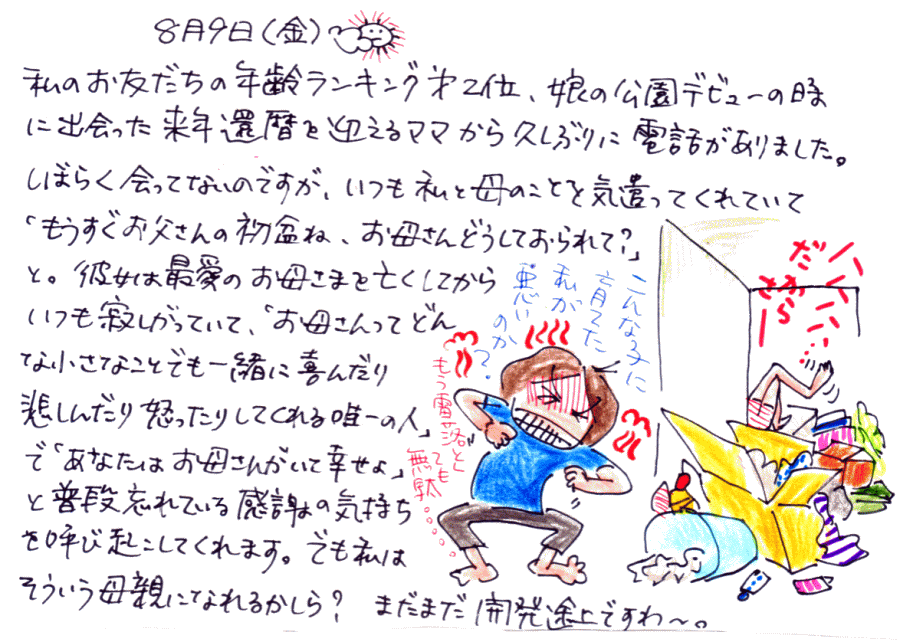 8月9日(金)
私のお友だちの年齢ランキング第2位、娘の公園デビューの時
に出会った来年還暦を迎えるママから久しぶりに電話がありました。
しばらく会ってないのですが、いつも私と母のことを気遣ってくれていて
「もうすぐお父さんの初盆ね、お母さんどうしておられて?」
と。彼女は最愛のお母さまを亡くしてから
いつも寂しがっていて、「お母さんってどん
な小さなことでも一緒に喜んだり
悲しんだり怒ったりしてくれる唯一の人」
で「あなたはお母さんがいて幸せよ」
と普段忘れている感謝の気持ち
を呼び起こしてくれます。でも私は
そういう母親になれるかしら? まだまだ開発途上ですわ〜。
こんな子に
育てた
私が
悪いのか?
もう雷落としても
無駄……
ハイハイハイ…
だから
さー